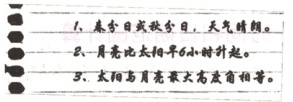 1、春分日或秋分日，天气晴朗。
2、月亮比太阳早6小时升起。
3、太阳与月亮最大高度角相等。